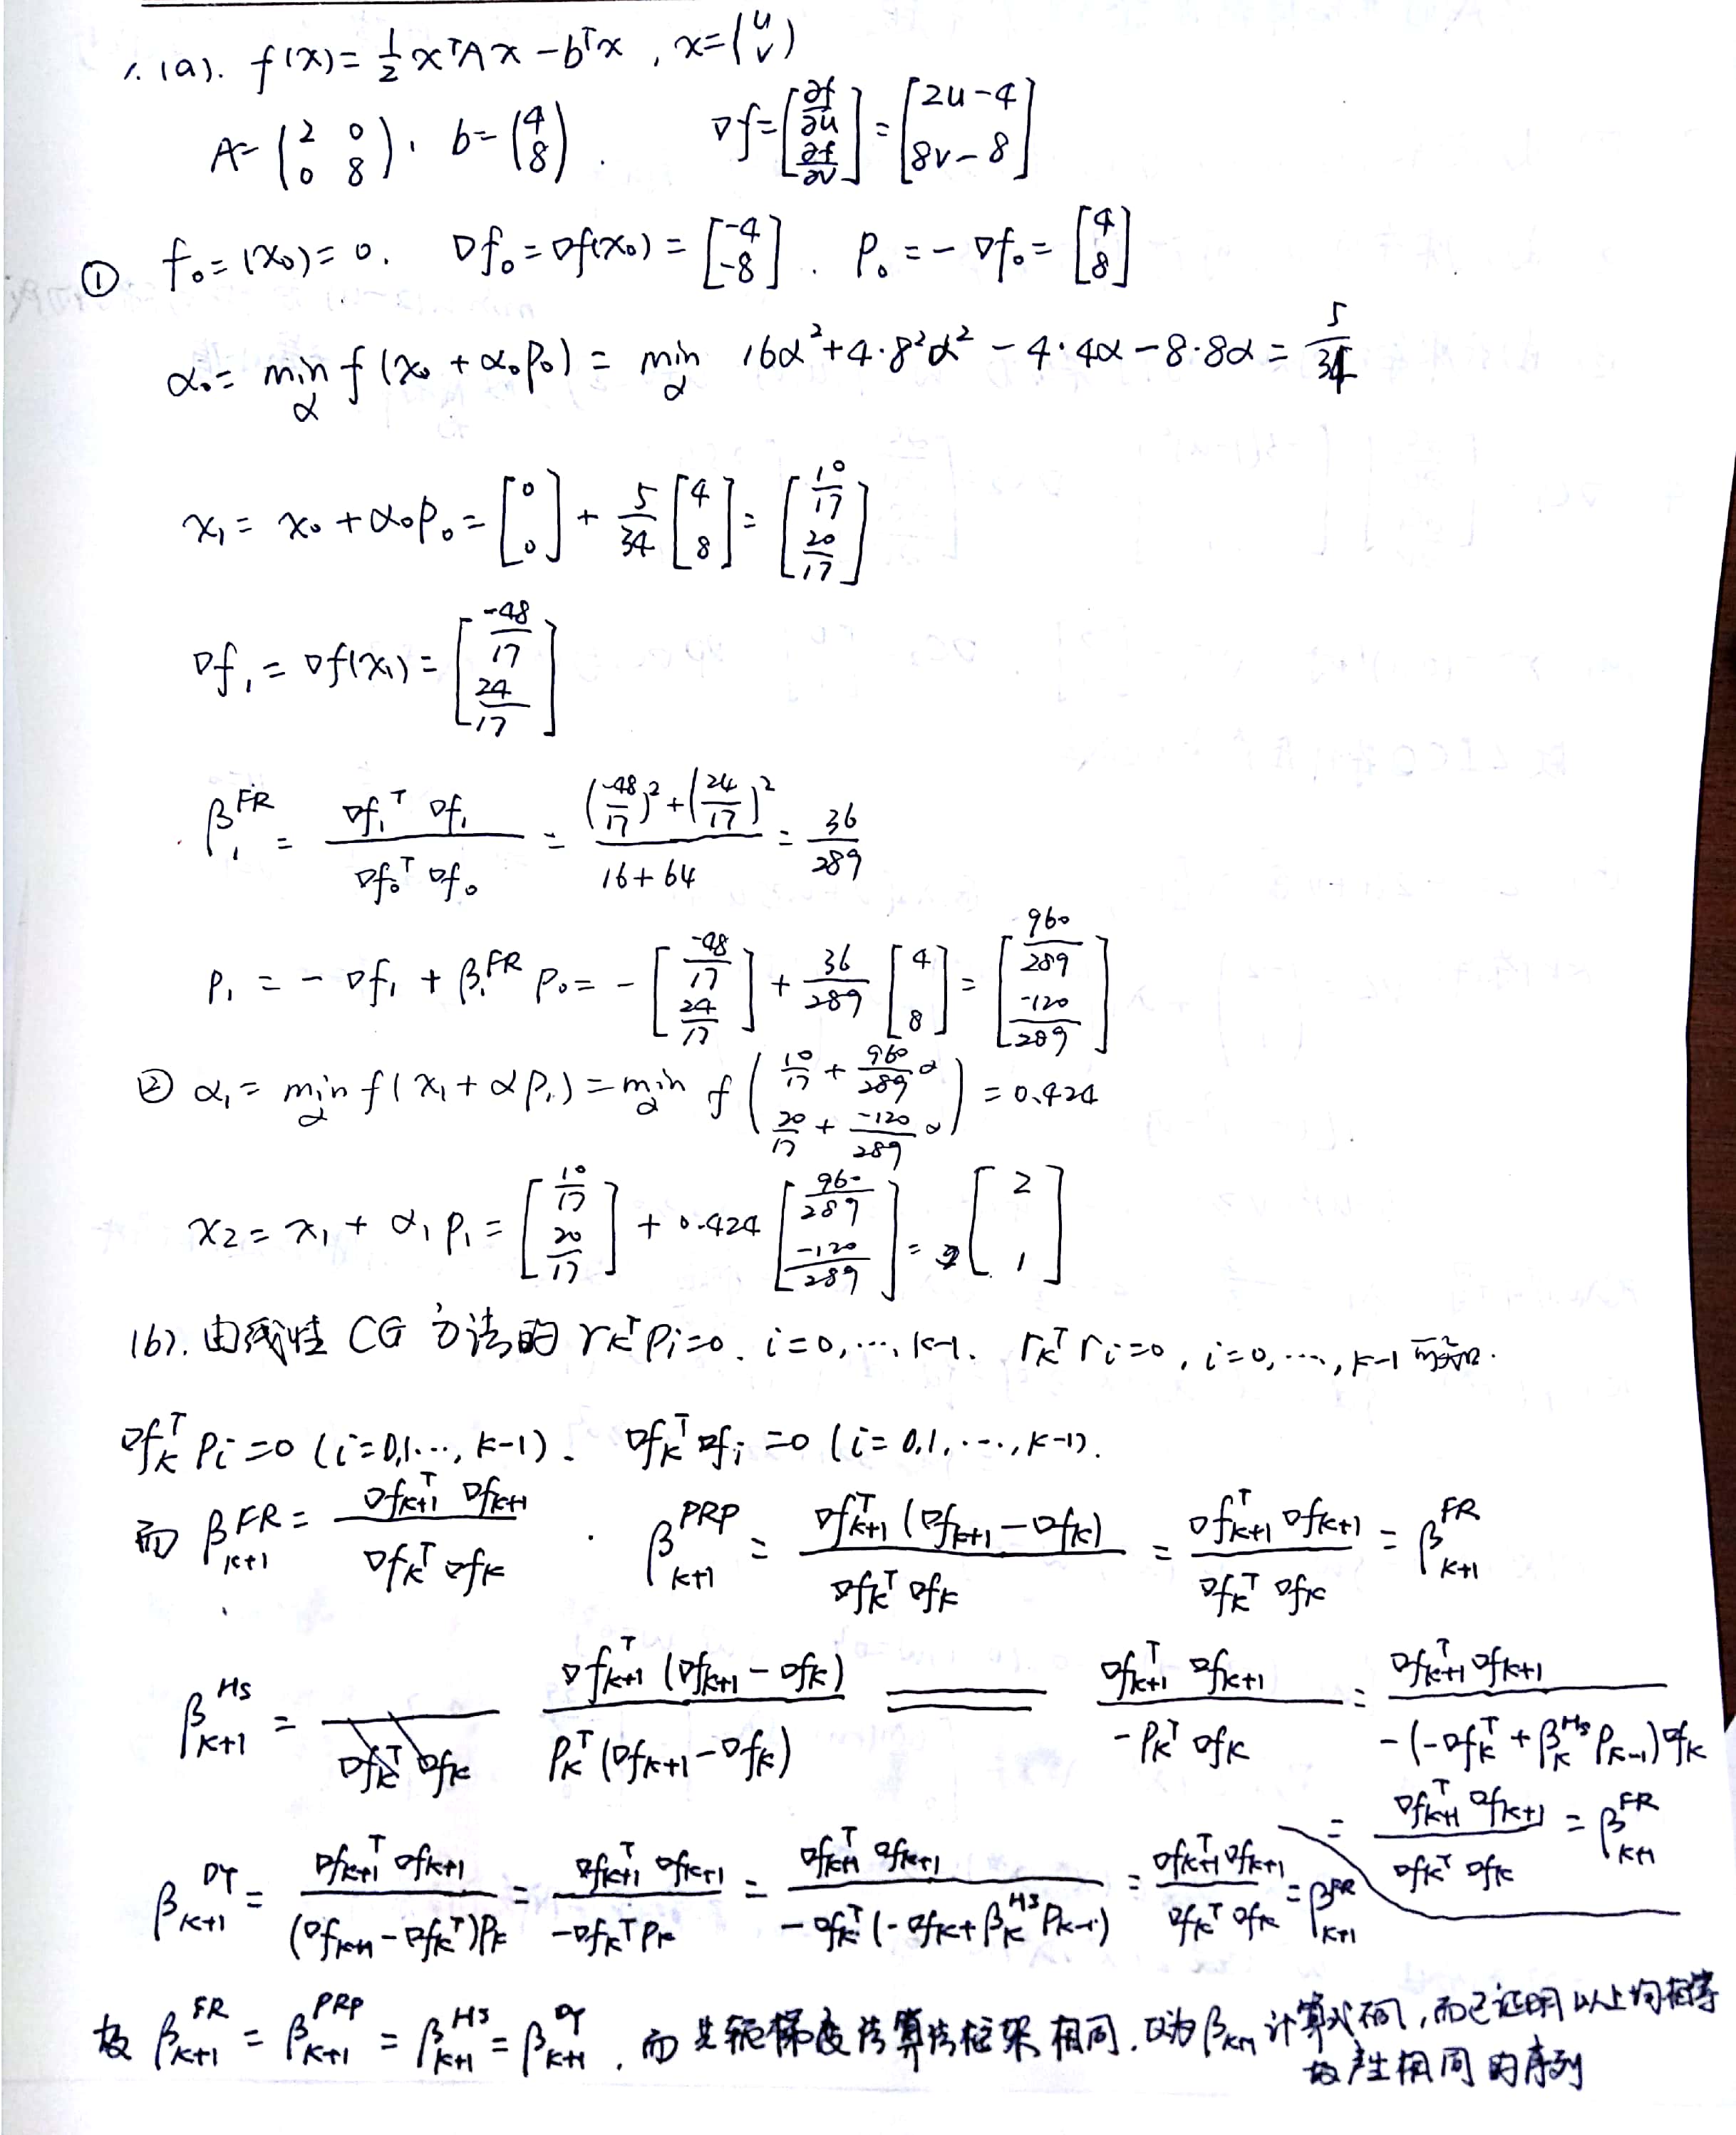 1. (a). f(x) = 1/2 xᵀAx − bᵀx , x = (u v)
A = (2 0 0 8), b = (4 8). ∇f = [∂f/∂u ∂f/∂v] = [2u−4 8v−8]
① f₀ = (x₀) = 0. ∇f₀ = ∇f(x₀) = [−4 −8]. P₀ = −∇f₀ = [4 8]
α₀ = min_α f(x₀ + α₀P₀) = min_α 16α² + 4·8²α² − 4·4α − 8·8α = 5/34
x₁ = x₀ + α₀P₀ = [0 0] + 5/34 [4 8] = [10/17 20/17]
∇f₁ = ∇f(x₁) = [−48/17 24/17]
β₁^FR = ∇f₁ᵀ∇f₁ / ∇f₀ᵀ∇f₀ = ((−48/17)² + (24/17)²) / (16+64) = 36/289
P₁ = −∇f₁ + β₁^FR P₀ = −[−48/17 24/17] + 36/289 [4 8] = [960/289 −120/289]
② α₁ = min_α f(x₁ + αP₁) = min_α f(10/17 + 960/289 α 20/17 + −120/289 α) = 0.424
x₂ = x₁ + α₁P₁ = [10/17 20/17] + 0.424 [960/289 −120/289] = [2 1]
(b). 由线性 CG 方法的 r_Kᵀ P_i = 0. i = 0, …, K−1. r_Kᵀ r_i = 0, i = 0, …, K−1 可知.
∇f_Kᵀ P_i = 0 (i = 0,1…, K−1). ∇f_Kᵀ ∇f_i = 0 (i = 0,1, …, K−1).
而 β_{K+1}^FR = ∇f_{K+1}ᵀ ∇f_{K+1} / ∇f_Kᵀ ∇f_K . β_{K+1}^PRP = ∇f_{K+1}ᵀ(∇f_{K+1} − ∇f_K) / ∇f_Kᵀ ∇f_K = ∇f_{K+1}ᵀ ∇f_{K+1} / ∇f_Kᵀ ∇f_K = β_{K+1}^FR
β_{K+1}^HS = ∇f_{K+1}ᵀ(∇f_{K+1} − ∇f_K) / P_Kᵀ(∇f_{K+1} − ∇f_K) = ∇f_{K+1}ᵀ ∇f_{K+1} / −P_Kᵀ ∇f_K = ∇f_{K+1}ᵀ ∇f_{K+1} / −(−∇f_Kᵀ + β_K^HS P_{K−1})∇f_K
= ∇f_{K+1}ᵀ ∇f_{K+1} / ∇f_Kᵀ ∇f_K = β_{K+1}^FR
β_{K+1}^DY = ∇f_{K+1}ᵀ ∇f_{K+1} / (∇f_{K+1} − ∇f_Kᵀ)P_K = ∇f_{K+1}ᵀ ∇f_{K+1} / −∇f_Kᵀ P_K = ∇f_{K+1}ᵀ ∇f_{K+1} / −∇f_Kᵀ(−∇f_K + β_K^HS P_{K−1}) = ∇f_{K+1}ᵀ ∇f_{K+1} / ∇f_Kᵀ ∇f_K = β_{K+1}^FR
故 β_{K+1}^FR = β_{K+1}^PRP = β_{K+1}^HS = β_{K+1}^DY , 而共轭梯度法算法框架相同. 因为 β_{K+1} 计算式不同, 而已证明以上均相等
故产生相同的序列